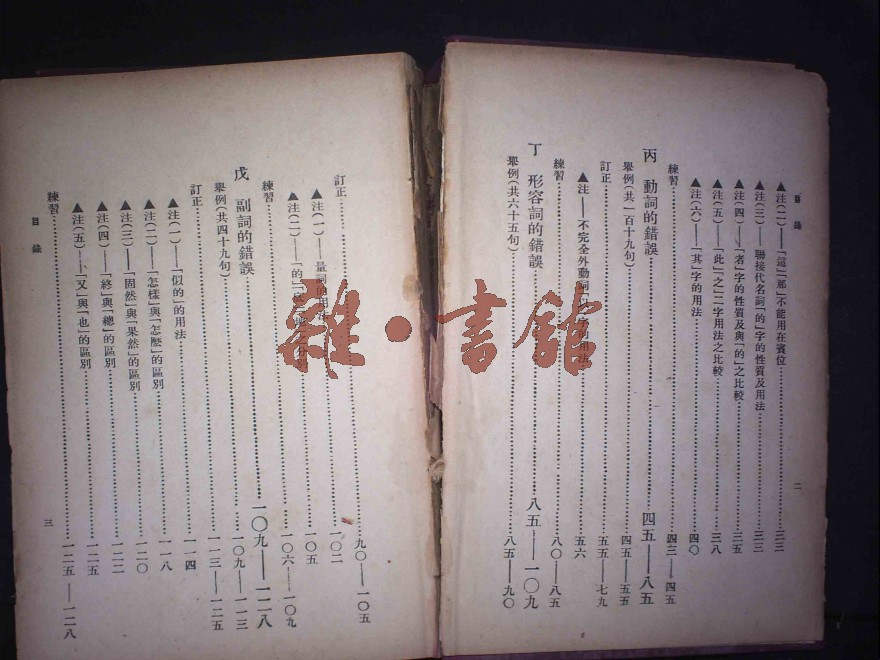 目錄
▲注(二)——「這」「那」不能用在賓位……三三
▲注(三)——聯接代名詞「的」字的性質及用法……三三
▲注(四)——「者」字的性質及與「的」之比較……三五
▲注(五)——「此」「之」二字用法之比較……三八
▲注(六)——「其」字的用法……四〇
練習……四三——四五
丙 動詞的錯誤……四五——八五
舉例(共一百十九句)……四五——五五
訂正……五五——七九
▲注——不完全外動詞……用法……五六
練習……八〇——八五
丁 形容詞的錯誤……八五——一〇九
舉例(共六十五句)……八五——九〇
二
訂正……九〇——一〇五
▲注(一)——量詞的用法……一〇二
▲注(二)——「的」……之分別……一〇五
練習……一〇六——一〇九
戊 副詞的錯誤……一〇九——一二八
舉例(共四十九句)……一〇九——一一三
訂正……一一三——一二五
▲注(一)——「似的」的用法……一一四
▲注(二)——「怎樣」與「怎麽」的區別……一一八
▲注(三)——「固然」與「果然」的區別……一二〇
▲注(四)——「終」與「總」的區別……一二二
▲注(五)——「又」與「也」的區別……一二五
練習……一二五——一二八
目錄
三
雜·書館